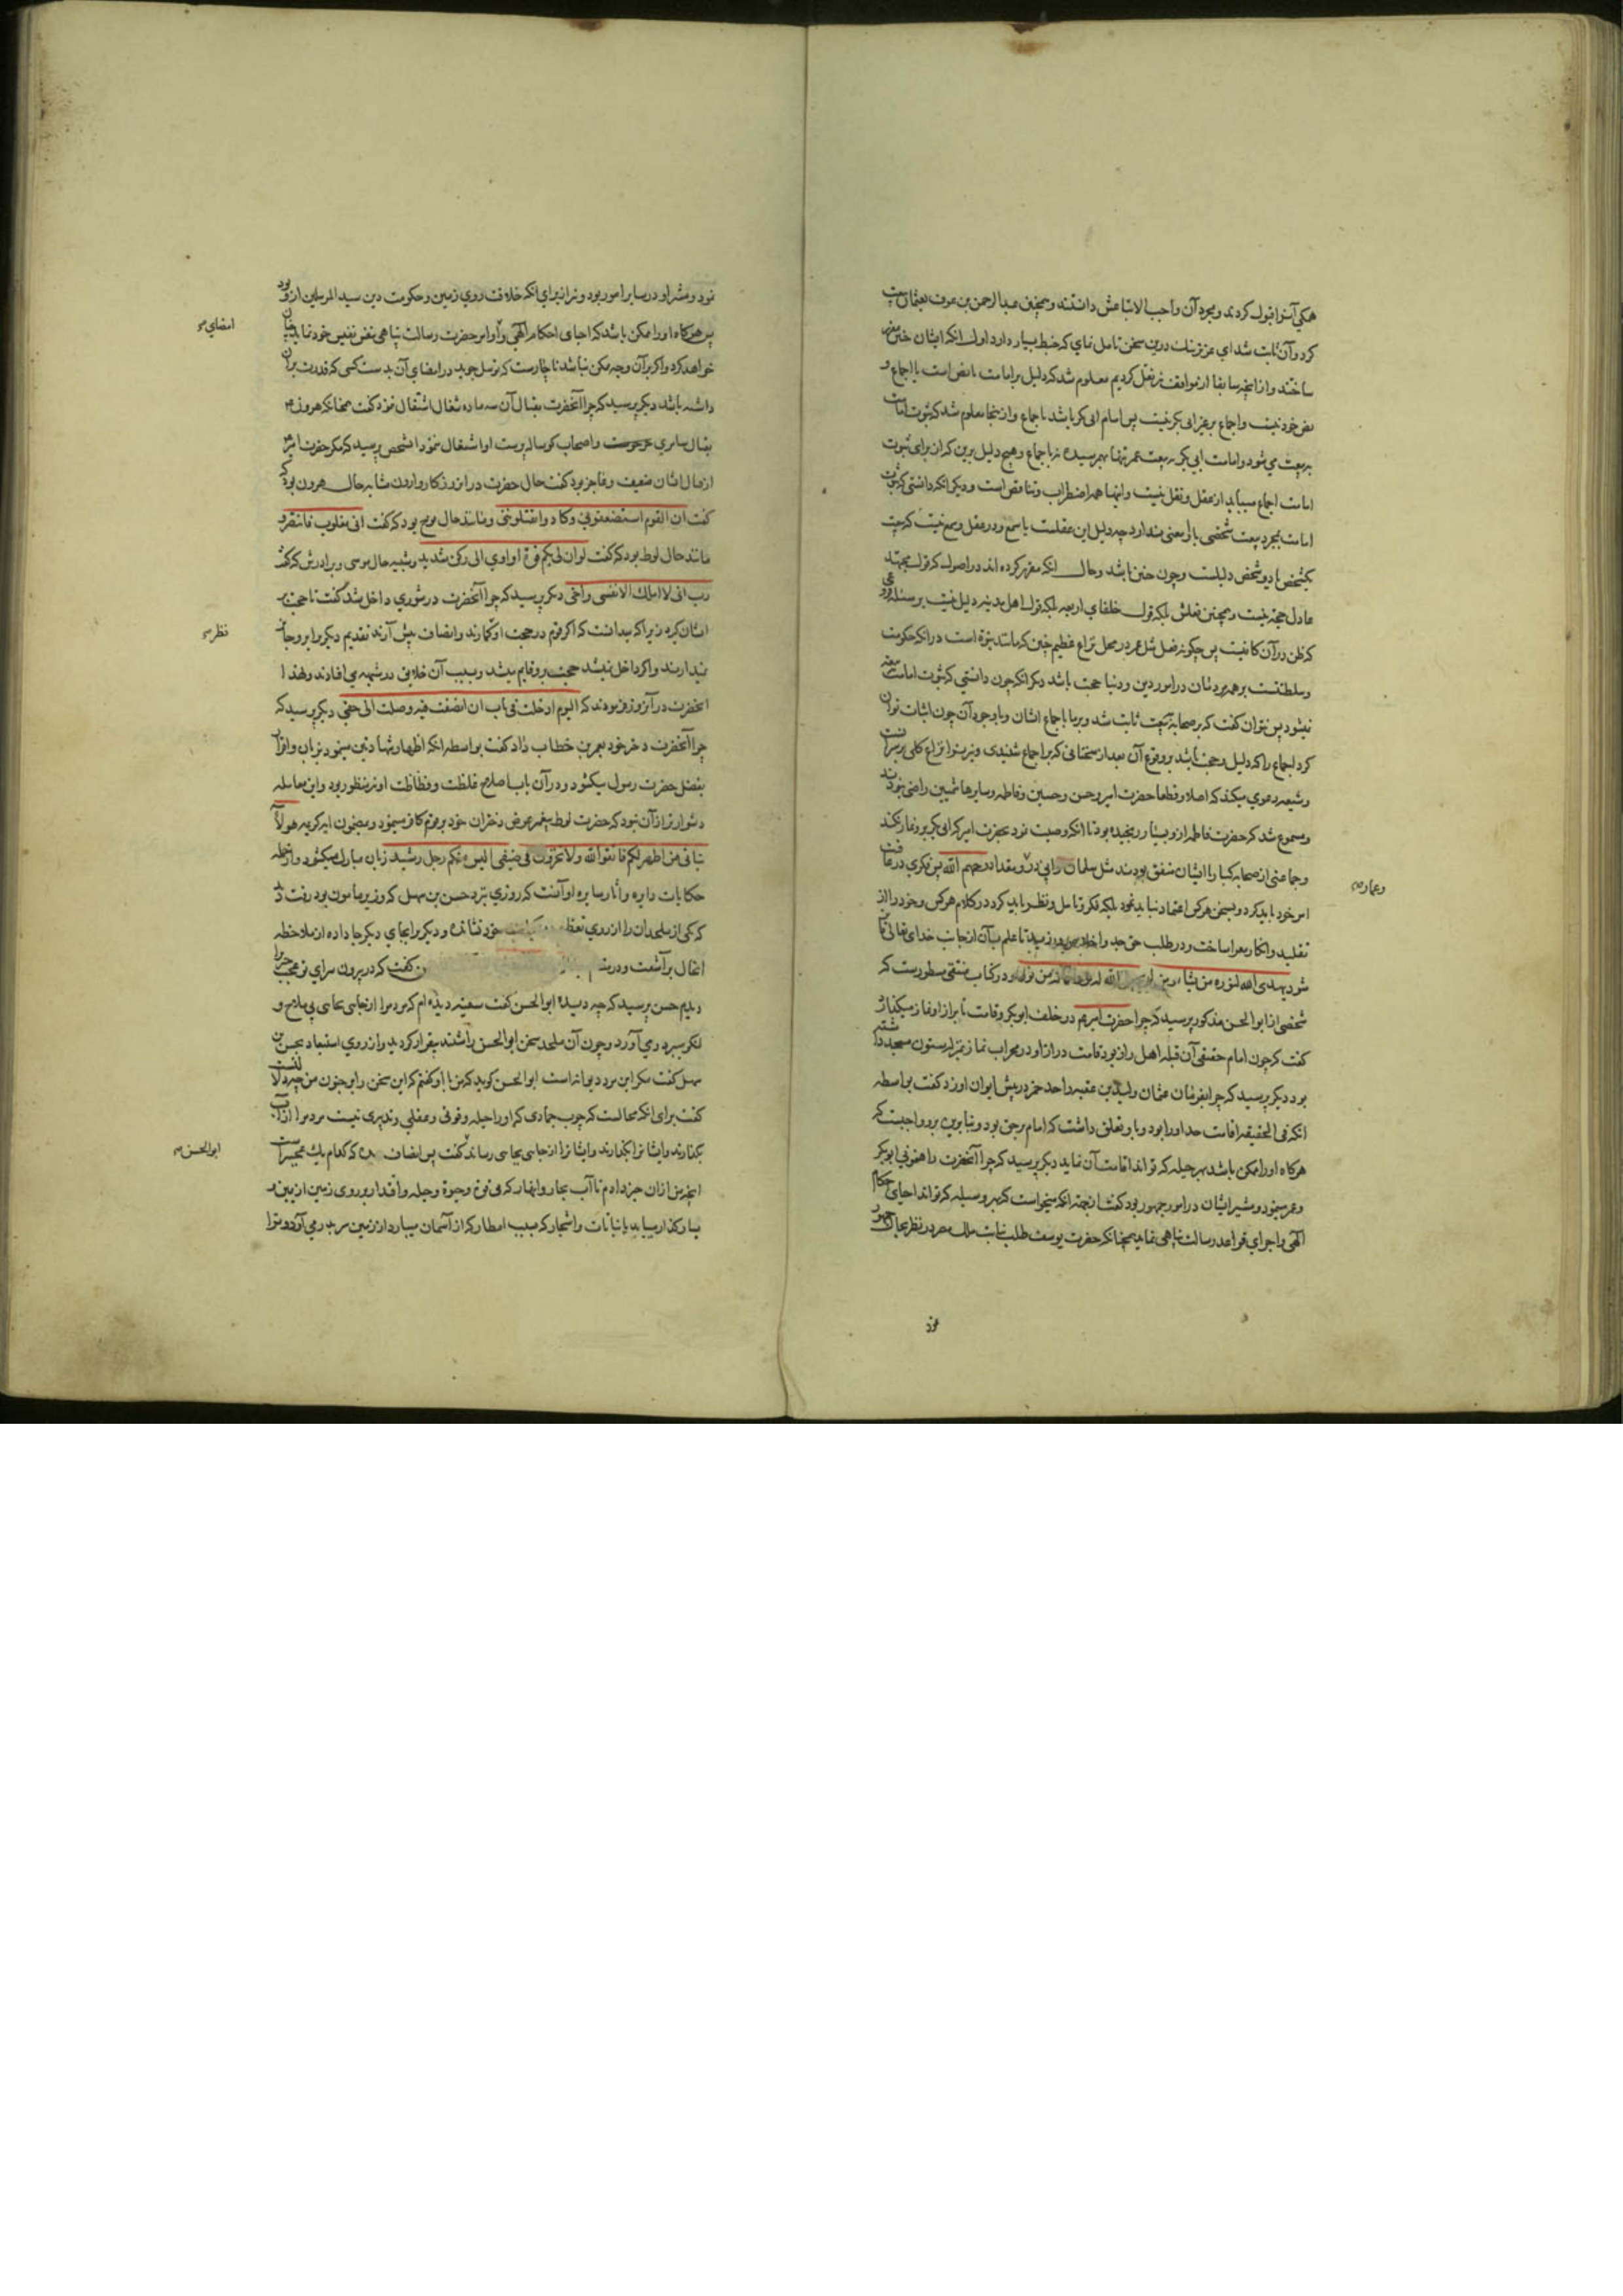 همگی آنرا قبول کردند و بمجرد آن واجب الاتباعش دانستند و همچنین عبدالرحمن بن عوف بعثمان بیعت
کرد و آن ثابت شد ای عزیز نیک درین سخن تامل نمای که خبط بسیار دارد اول آنکه ایشان خود مقرر
ساختند و از آنچه سابقا از مواقف نیز نقل کردیم معلوم شد که دلیل بر امامت یا نص است یا اجماع و
نص خود نیست و اجماع بر غیر ابی بکر نیست پس امام ابی بکر باشد باجماع و ازینجا معلوم شد که ثبوت امامت
به بیعت می شود و امامت ابی بکر به بیعت عمر تنها بهم رسیده نه باجماع و هیچ دلیل برین که از برای ثبوت
امامت اجماع میباید از عقل و نقل نیست و اینها همه اضطراب و تناقض است و دیگر آنکه دانستی که ثبوت
امامت بمجرد بیعت شخصی با او معنی ندارد چه دلیل این عقلست یا سمع و در عقل و سمع نیست که بیعت
یکشخص یا دو شخص دلیلست و چون چنین باشد و حال آنکه مقرر کرده اند در اصول که قول مجتهد
عادل حجت نیست و همچنین فعلش بلکه قول خلفای اربعه بلکه قول اهل مدینه دلیل نیست بر مسئله فروعی
که ظن در آن کافیست پس چگونه فعل مثل عمر در محل نزاع عظیم چنین که مانند نبوة است در آنکه حکومت
و سلطنتست بر همه مردمان در امور دین و دنیا حجت باشد دیگر آنکه چون دانستی که ثبوت امامت بیعت
نمیشود پس نتوان گفت که بر صحابه به بیعت ثابت شد و بر ما باجماع ایشان و با وجود آن چون اثبات توان
کرد اجماع را که دلیل و حجت باشد بر وقوع آن بعد از سخنانی که بر اجماع شنیدی و نیز بتواتر نزاع کلی برخاست
و شیعه دعوی میکند که اصلا و قطعا حضرت امیر و حسن و حسین و فاطمه و سایر هاشمیین راضی نبودند
و مسموع شد که حضرت فاطمه ازو بسیار رنجیده بود تا آنکه وصیت نمود بحضرت امیر که ابی بکر برو نماز نکند
و جماعتی از صحابه کبار با ایشان متفق بودند مثل سلمان و ابی ذر و مقداد رحمهم الله پس فکری در عاقبت
و عمار صح
امر خود باید کرد و بسخن هر کس اعتماد نباید نمود بلکه فکر و تامل و نظر باید کرد در کلام هر کس و خود را از
تقلید و انکار معرا ساخت و در طلب حق جد و اخلاص ورزید تا علم بآن از جانب خدای تعالی فایض
شود یهدی الله لنوره من یشاء و من لم یجعل الله له نورا فما له من نور و در کتاب منتقی مسطورست که
شخصی از ابو الحسن مذکور پرسید که چرا حضرت امیر هم در خلف ابوبکر و قامت نابراز او نماز میگذارد
گفت که چون امام حقیقی آن قبله اهل راز بود قامت دراز او در محراب نماز بمنزله ستون مسجد داشته
بود دیگر پرسید که چرا بفرمان عثمان ولید بن عقبه را حد خمر در پیش ایوان او زد گفت بواسطه
آنکه فی الحقیقه اقامت حد او را بود و باو تعلق داشت که امام برحق بود و بنابرین برو واجبست که
هرگاه او را ممکن باشد بهر حیله که تواند اقامت آن نماید دیگر پرسید که چرا آنحضرت راهنمونی ابوبکر
و عمر مینمود و مشیر ایشان در امور جمهور بود گفت از جهت آنکه میخواست که بهر وسیله که تواند احیای احکام
الهی و اجرای قواعد رسالت پناهی نماید همچنانکه حضرت یوسف طلب نیابت ملک مصر در نظر بحال جمهور
نمود
نمود و مشیر او در سایر امور بود و نیز از برای آنکه خلافت روی زمین و حکومت دین سید المرسلین ازو بود
پس هرگاه او را ممکن باشد که اجرای احکام الهی و اوامر حضرت رسالت پناهی بنفس نفیس خود نماید چنان
امضای صح
خواهد کرد و اگر بر آن وجه ممکن نباشد ناچارست که توسل جوید در امضای آن بدست کسی که قدرت بر آن
داشته باشد دیگر پرسید که چرا آنحضرت بقتال آن سه ماده شغال اشتغال ننمود گفت همچنانکه هرون هم
بقتال سامری و اصحاب گوساله پرست او اشتغال ننمود آن شخص پرسید که مگر حضرت امیر هم
از قتال ایشان ضعیف و عاجز بود گفت حال حضرت در آن روزگار وارون مشابه حال هرون بود که
گفت ان القوم استضعفونی و کادوا یقتلوننی و مانند حال نوح بود که گفت انی مغلوب فانتصر و
مانند حال لوط بود که گفت لو ان لی بکم قوة او اوی الی رکن شدید و شبیه حال موسی و برادرش که گفت
رب انی لا املک الا نفسی و اخی دیگر پرسید که چرا آنحضرت در شوری داخل شد گفت تا حجت بر
ایشان گیرد زیرا که میدانست که اگر قوم در حجت او گمارند و انصاف پیش آرند تقدیم دیگری برو جایز
نظر صح
نمیدارند و اگر داخل نمیشد حجت برو قایم میشد و بسبب آن خلایق در شبهه می افتادند و لهذا
آنحضرت در آنروز فرمودند که الیوم ادخلت فی باب ان انصفت فیه وصلت الی حقی دیگر پرسید که
چرا آنحضرت دختر خود بعمر بن خطاب داد گفت بواسطه آنکه اظهار شهادتین مینمود بزبان و اقرار
بفضل حضرت رسول میکشود و در آن باب اصلاح غلظت و فظاظت او نیز منظور بود و این معامله
دشوارتر از آن نبود که حضرت لوط پیغمبر عرض دختران خود بر قوم کافر مینمود و بمضمون آیه کریمه هولاء
بناتی هن اطهر لکم فاتقوا الله و لا تخزون فی ضیفی الیس منکم رجل رشید زبان مبارک میگشود و از جمله
حکایات دایره و آثار سایره او آنست که روزی نزد حسن بن سهل که وزیر مامون بود رفت دید
که یکی از ملحدان را از روی تعظیم خود نشانده و دیگر را بجای دیگر جا داده از ملاحظه
انفال برآشفت و در گفت که در بیرون سرای تو عجب چیزی
دیدیم حسن پرسید که چه دیده ابو الحسن گفت سفینه دیدهام که مردم را از جایی بجایی بی ملاح و
لنگر میبرد و می آورد و چون آن ملحد سخن ابو الحسن را شنید بیقرار گردید و از روی استبعاد بحسن بن
سهل گفت مگر این مرد دیوانه است ابو الحسن گوید که من باو گفتم که این سخن را بر جنون من چه دلالتست
گفت برای آنکه محالست که چوب جمادی که او را حیله و قوتی و عقلی و تدبیری نیست مردم را از آب
بگذارند و ایشانرا بگذارند و ایشانرا از جایی بجایی رساند گفت پس انصاف بده که کدام یک عجیبترست
ابو الحسن صح
آنچه من از آن خبر دادم یا آب بحار و انهار که بی نوع وجوه و حیله و اقدار بر روی زمین از یمین و
یسار گذار میباید یا نباتات و اشجار که بسبب امطار که از آسمان میبارد از زمین سر بدر می آورد و ترا